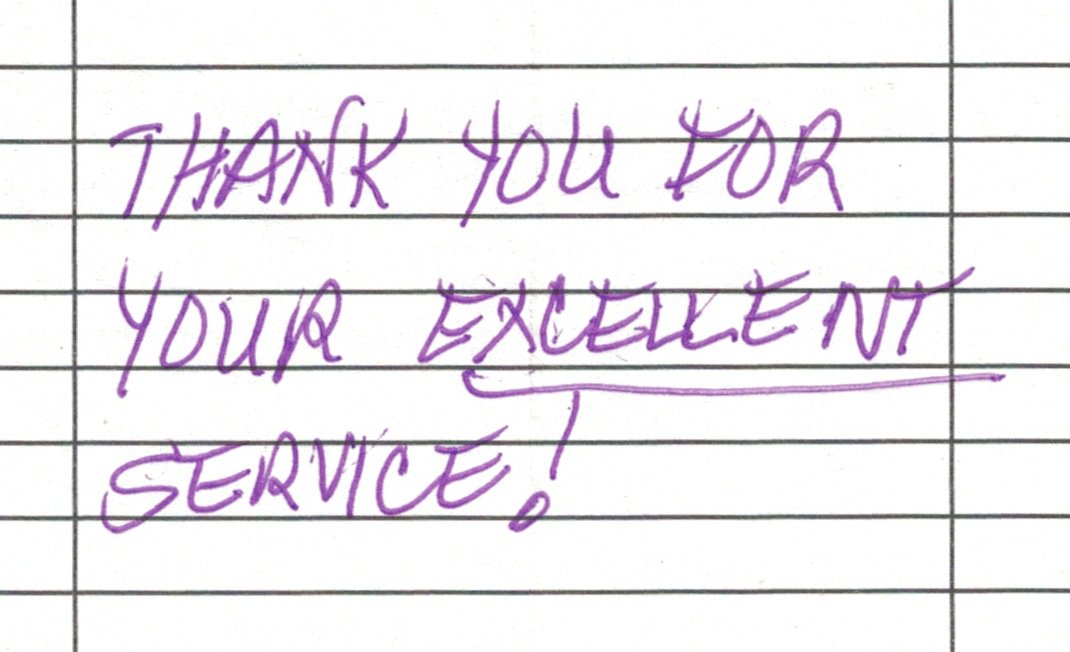 THANK YOU FOR
YOUR EXCELLENT
SERVICE!